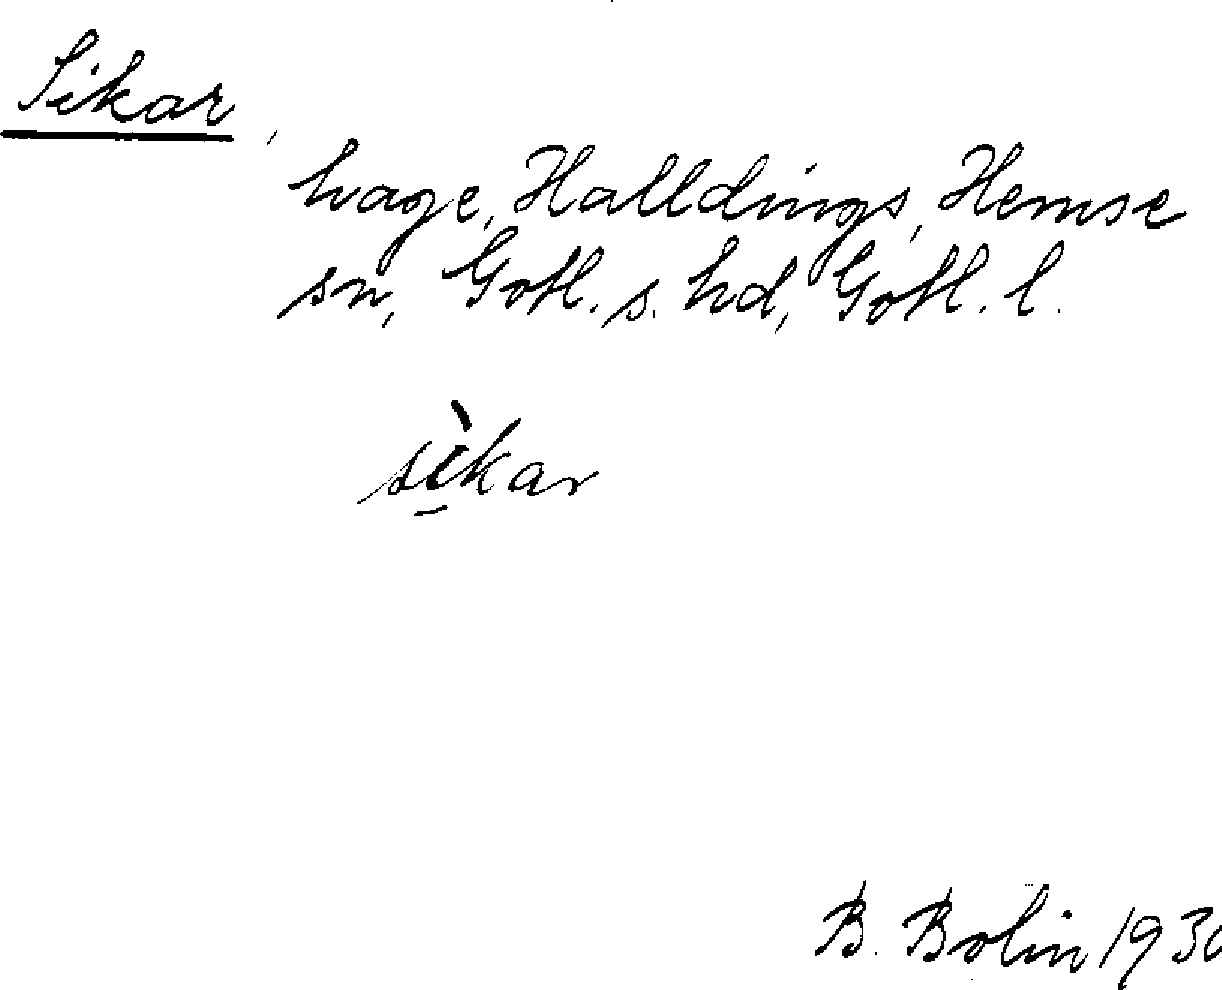 Sikar,
hage, Halldings, Hemse
sn, Gotl. s. hd, Gotl. l.
sìkar
B. Bolin 1930